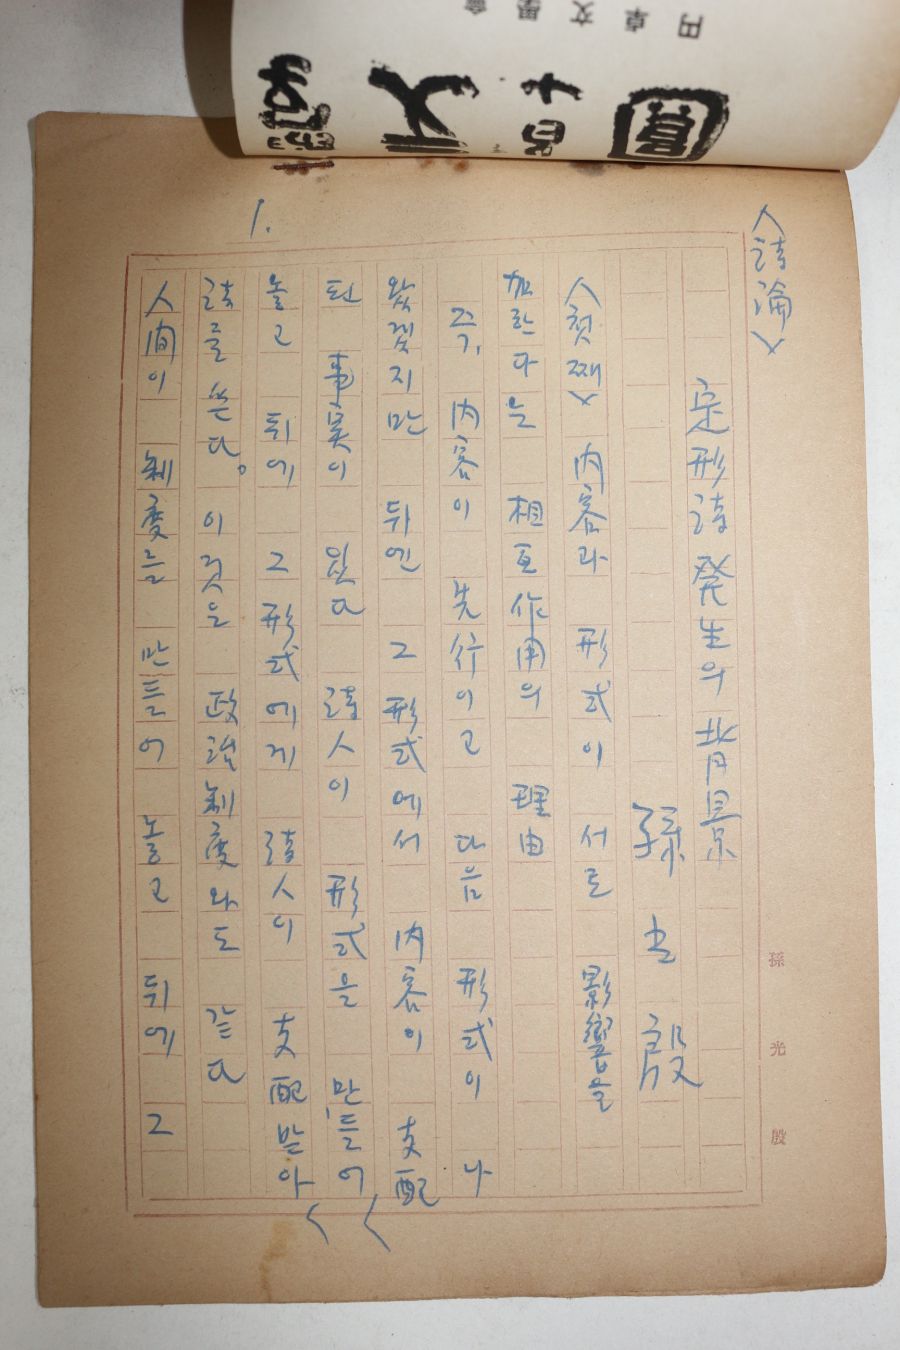 円卓文學會
圓卓文學
1.
<詩論>
定形詩 発生의 背景
孫光殷
<첫째> 内容과 形式이 서로 影響을
加한다는 相互作用의 理由
즉, 内容이 先行이고 다음 形式이 나
왔겠지만 뒤엔 그 形式에서 内容이 支配
된 事実이 있다 詩人이 形式을 만들어
놓고 뒤에 그 形式에게 詩人이 支配받아
詩를 쓴다。 이것은 政治制度와도 같다
人間이 制度를 만들어 놓고 뒤에 그
孫光殷